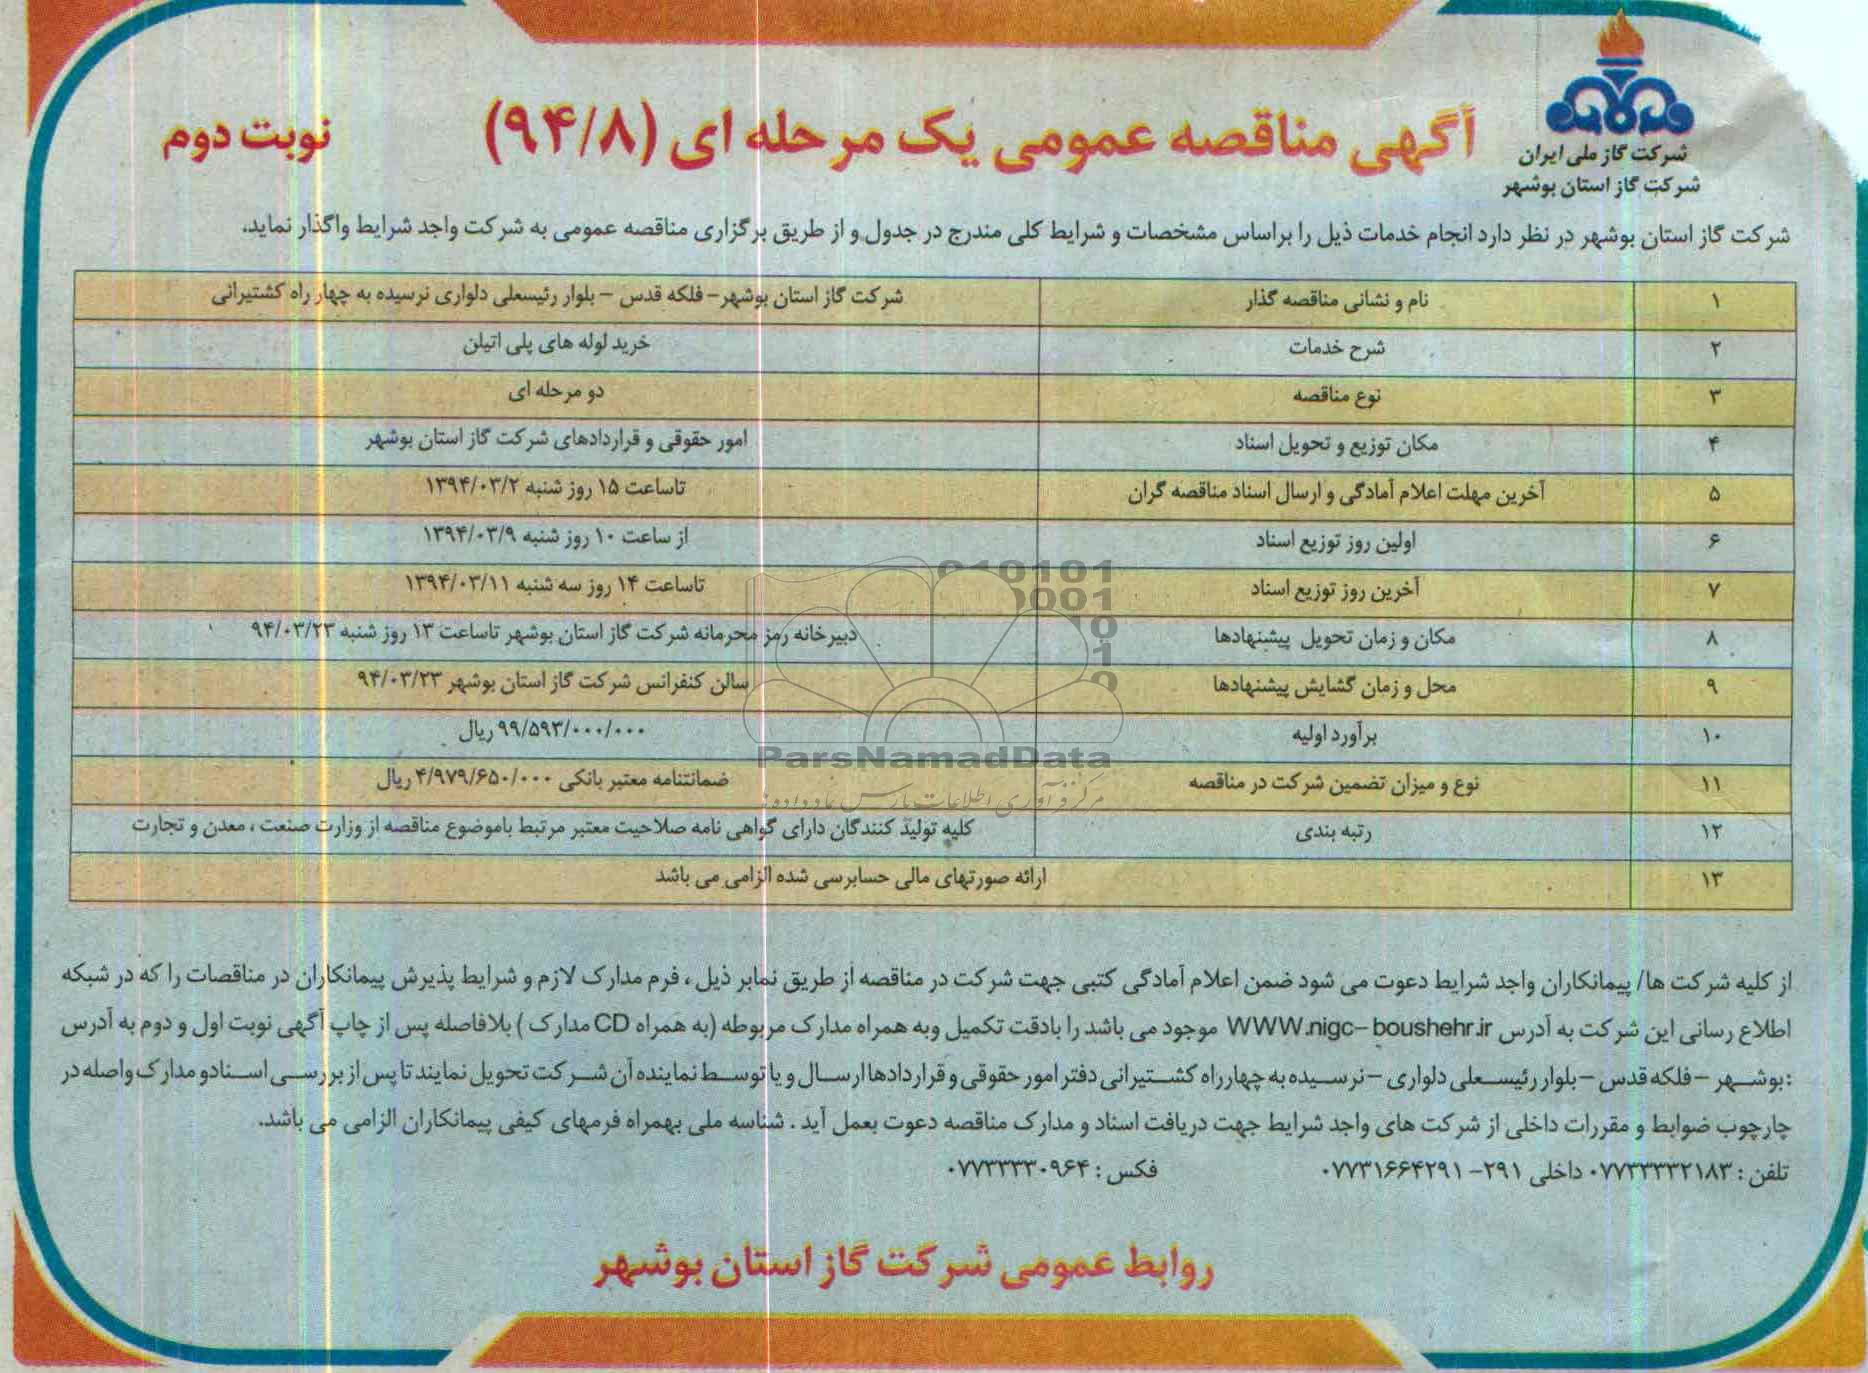 شرکت گاز ملی ایران
شرکت گاز استان بوشهر
آگهی مناقصه عمومی یک مرحله ای (۹۴/۸)
نوبت دوم
شرکت گاز استان بوشهر در نظر دارد انجام خدمات ذیل را براساس مشخصات و شرایط کلی مندرج در جدول و از طریق برگزاری مناقصه عمومی به شرکت واجد شرایط واگذار نماید.
۱ نام و نشانی مناقصه گذار شرکت گاز استان بوشهر– فلکه قدس – بلوار رئیسعلی دلواری نرسیده به چهار راه کشتیرانی
۲ شرح خدمات خرید لوله های پلی اتیلن
۳ نوع مناقصه دو مرحله ای
۴ مکان توزیع و تحویل اسناد امور حقوقی و قراردادهای شرکت گاز استان بوشهر
۵ آخرین مهلت اعلام آمادگی و ارسال اسناد مناقصه گران تاساعت ۱۵ روز شنبه ۱۳۹۴/۰۳/۲
۶ اولین روز توزیع اسناد از ساعت ۱۰ روز شنبه ۱۳۹۴/۰۳/۹
۷ آخرین روز توزیع اسناد تاساعت ۱۴ روز سه شنبه ۱۳۹۴/۰۳/۱۱
۸ مکان و زمان تحویل پیشنهادها دبیرخانه رمز محرمانه شرکت گاز استان بوشهر تاساعت ۱۳ روز شنبه ۹۴/۰۳/۲۳
۹ محل و زمان گشایش پیشنهادها سالن کنفرانس شرکت گاز استان بوشهر ۹۴/۰۳/۲۳
۱۰ برآورد اولیه ۹۹/۵۹۳/۰۰۰/۰۰۰ ریال
۱۱ نوع و میزان تضمین شرکت در مناقصه ضمانتنامه معتبر بانکی ۴/۹۷۹/۶۵۰/۰۰۰ ریال
۱۲ رتبه بندی کلیه تولید کنندگان دارای گواهی نامه صلاحیت معتبر مرتبط باموضوع مناقصه از وزارت صنعت ، معدن و تجارت
۱۳ ارائه صورتهای مالی حسابرسی شده الزامی می باشد
010101
0001
10
1
0
ParsNamadData
مرکز فرآوری اطلاعات پارس نماد داده ها
از کلیه شرکت ها/ پیمانکاران واجد شرایط دعوت می شود ضمن اعلام آمادگی کتبی جهت شرکت در مناقصه از طریق نمابر ذیل ، فرم مدارک لازم و شرایط پذیرش پیمانکاران در مناقصات را که در شبکه
اطلاع رسانی این شرکت به آدرس WWW.nigc– boushehr.ir موجود می باشد را بادقت تکمیل وبه همراه مدارک مربوطه (به همراه CD مدارک ) بلافاصله پس از چاپ آگهی نوبت اول و دوم به آدرس
: بوشهر – فلکه قدس – بلوار رئیسعلی دلواری – نرسیده به چهارراه کشتیرانی دفتر امور حقوقی و قراردادها ارسال و یا توسط نماینده آن شرکت تحویل نمایند تا پس از بررسی اسناد و مدارک واصله در
چارچوب ضوابط و مقررات داخلی از شرکت های واجد شرایط جهت دریافت اسناد و مدارک مناقصه دعوت بعمل آید . شناسه ملی بهمراه فرمهای کیفی پیمانکاران الزامی می باشد.
تلفن : ۰۷۷۳۳۳۳۲۱۸۳ داخلی ۲۹۱– ۰۷۷۳۱۶۶۴۲۹۱ فکس : ۰۷۷۳۳۳۳۰۹۶۴
روابط عمومی شرکت گاز استان بوشهر